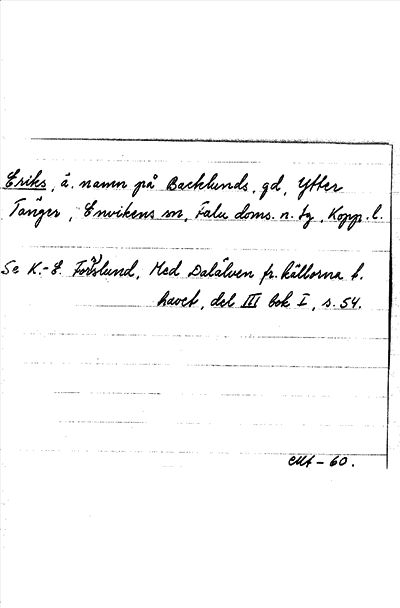 Eriks, ä. namn på Backlunds, gd, Ytter
Tänger, Envikens sn, Falu doms. n. tg, Kopp. l.
Se K.-E. Forslund, Med Dalälven fr. källorna t.
havet, del III bok I, s. 54.
- 60.